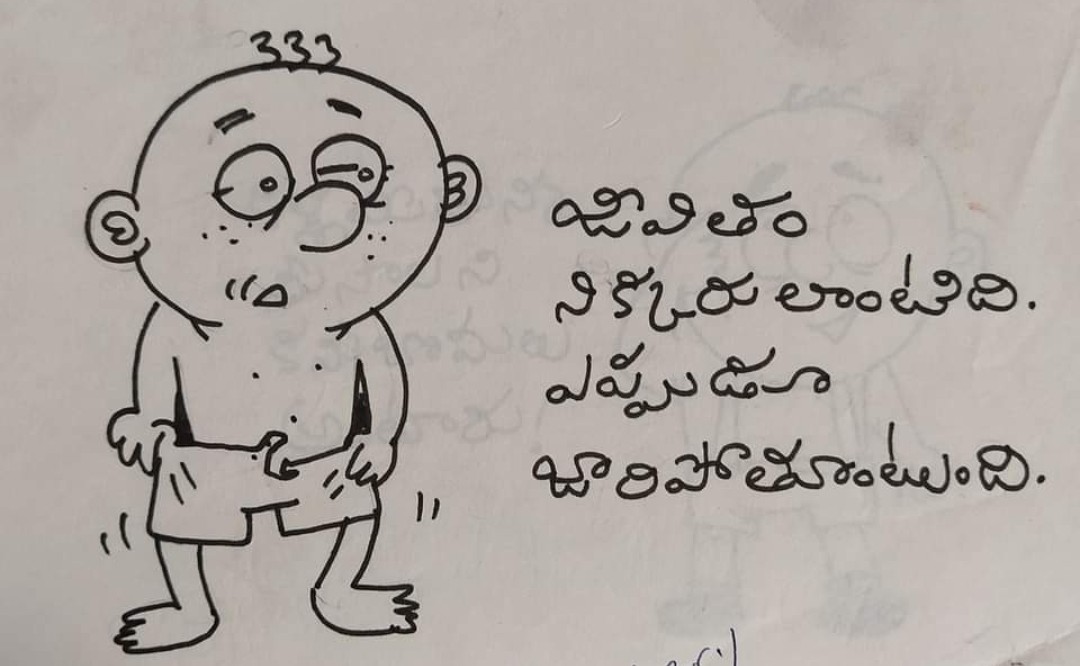 జీవితం
నిక్కరు లాంటిది.
ఎప్పుడూ
జారిపోతూంటుంది.